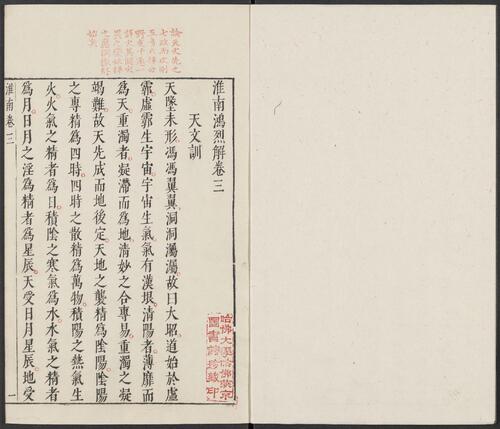 論天文先之
七政而次則
淮南鴻烈解卷三
天文訓
天墬未形馮馮翼翼洞洞灟灟故曰大昭道始於虛
霩虛霩生宇宙宇宙生氣氣有漢垠清陽者薄靡而
爲天重濁者凝滯而爲地清妙之合專易重濁之凝
竭難故天先成而地後定天地之襲精爲陰陽陰陽
之專精爲四時四時之散精爲萬物積陽之熱氣生
火火氣之精者爲日積陰之寒氣爲水水氣之精者
爲月日月之淫爲精者爲星辰天受日月星辰地受
淮南卷三
一
哈佛大學哈佛燕京
圖書館珍藏印